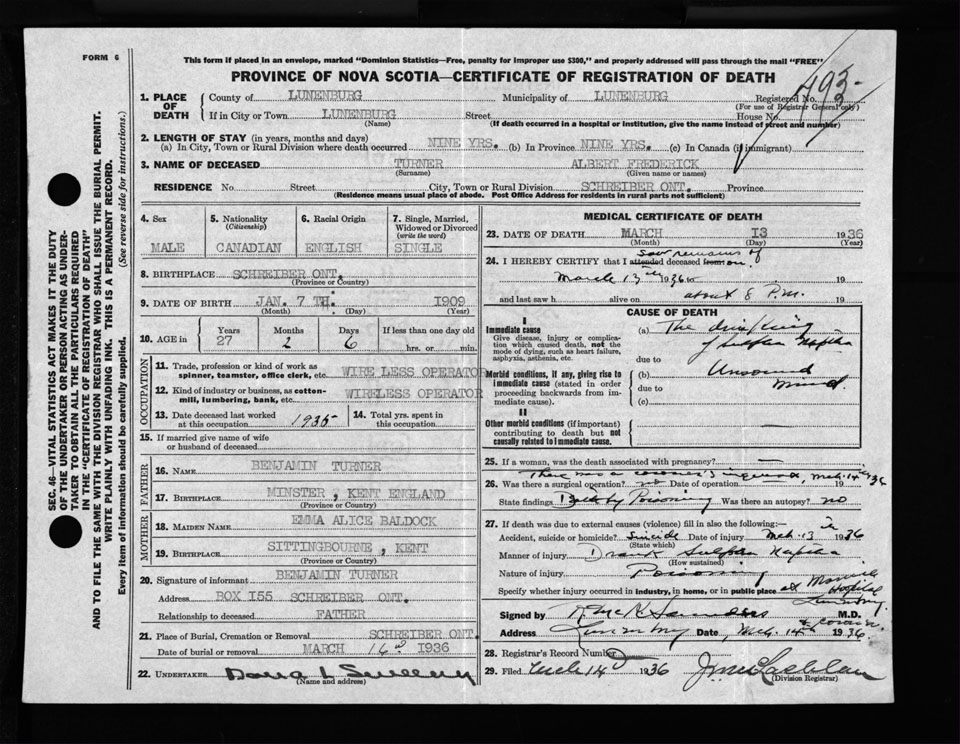 FORM 6
This form if placed in an envelope, marked "Dominion Statistics—Free, penalty for improper use $300," and properly addressed will pass through the mail "FREE"
PROVINCE OF NOVA SCOTIA—CERTIFICATE OF REGISTRATION OF DEATH
1. PLACE OF DEATH
County of LUNENBURG Municipality of LUNENBURG Registered No.
(For use of Registrar General only)
If in City or Town LUNENBURG Street House No.
(Name) (If death occurred in a hospital or institution, give the name instead of street and number)
2. LENGTH OF STAY (in years, months and days)
(a) In City, Town or Rural Division where death occurred NINE YRS. (b) In Province NINE YRS. (c) In Canada (if immigrant)
3. NAME OF DECEASED TURNER ALBERT FREDERICK
(Surname) (Given name or names)
RESIDENCE No. Street City, Town or Rural Division SCHREIBER ONT. Province
(Residence means usual place of abode. Post Office Address for residents in rural parts not sufficient)
4. Sex 5. Nationality (Citizenship) 6. Racial Origin 7. Single, Married, Widowed or Divorced (write the word)
MALE CANADIAN ENGLISH SINGLE
8. BIRTHPLACE SCHREIBER ONT.
(Province or Country)
9. DATE OF BIRTH JAN. 7 TH. 1909
(Month) (Day) (Year)
10. AGE in Years Months Days If less than one day old
27 2 6 hrs. or min.
OCCUPATION
11. Trade, profession or kind of work as spinner, teamster, office clerk, etc. WIRE LESS OPERATOR
12. Kind of industry or business, as cotton-mill, lumbering, bank, etc. WIRELESS OPERATOR
13. Date deceased last worked at this occupation 1935 14. Total yrs. spent in this occupation
15. If married give name of wife or husband of deceased
FATHER
16. Name BENJAMIN TURNER
17. Birthplace MINSTER, KENT ENGLAND
(Province or Country)
MOTHER
18. MAIDEN NAME EMMA ALICE BALDOCK
19. Birthplace SITTINGBOURNE, KENT
(Province or Country)
20. Signature of informant BENJAMIN TURNER
Address BOX 155 SCHREIBER ONT.
Relationship to deceased FATHER
21. Place of Burial, Cremation or Removal SCHREIBER ONT.
Date of burial or removal MARCH 16 1936
22. UNDERTAKER
(Name and address)
MEDICAL CERTIFICATE OF DEATH
23. DATE OF DEATH MARCH 13 1936
(Month) (Day) (Year)
24. I HEREBY CERTIFY that I attended deceased from
saw remains of on
March 13th 1936 to 19
and last saw h alive on about 8 P.M. 19
CAUSE OF DEATH
I
Immediate cause
Give disease, injury or complication which caused death, not the mode of dying, such as heart failure, asphyxia, asthenia, etc.
(a) The drinking
of Sulpha Naptha
due to
Morbid conditions, if any, giving rise to immediate cause (stated in order proceeding backwards from immediate).
(b) Unsound
Mind.
due to
(c)
II
Other morbid conditions (if important) contributing to death but not causally related to immediate cause.
25. If a woman, was the death associated with pregnancy?
There was a coroner's inquest, Mch. 14th 36
26. Was there a surgical operation? no Date of operation 19
State findings Death by Poisoning Was there an autopsy? no
27. If death was due to external causes (violence) fill in also the following:—
Accident, suicide or homicide? Suicide Date of injury Mch 13 1936
(State which)
Manner of injury Drank Sulpha Naptha
(How sustained)
Nature of injury Poisoning
Specify whether injury occurred in industry, in home, or in public place at Marine Hospital
Lunenburg
Signed by M.D.
Address Lunenburg Date, Mch. 14th 1936.
28. Registrar's Record Number
29. Filed Mch 14 1936
(Division Registrar)
SEC. 46—VITAL STATISTICS ACT MAKES IT THE DUTY
OF THE UNDERTAKER OR PERSON ACTING AS UNDER-
TAKER TO OBTAIN ALL THE PARTICULARS REQUIRED
IN THE "CERTIFICATE OF REGISTRATION OF DEATH"
AND TO FILE THE SAME WITH THE DIVISION REGISTRAR WHO SHALL ISSUE THE BURIAL PERMIT.
WRITE PLAINLY WITH UNFADING INK. THIS IS A PERMANENT RECORD.
Every item of information should be carefully supplied. (See reverse side for instructions.)